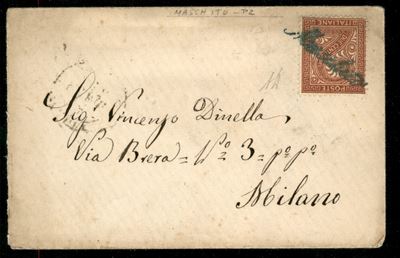 MASCHITO - P2
POSTE
ITALIANE
Sig. Vincenzo Dinella,
Via Brera = Nº 3 = pº pº
Milano